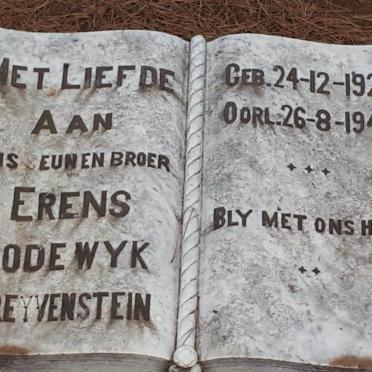 MET LIEFDE
AAN
NS SEUN EN BROER
ERENS
LODEWYK
REYVENSTEIN
GEB. 24-12-192
OORL. 26-8-194
BLY MET ONS H